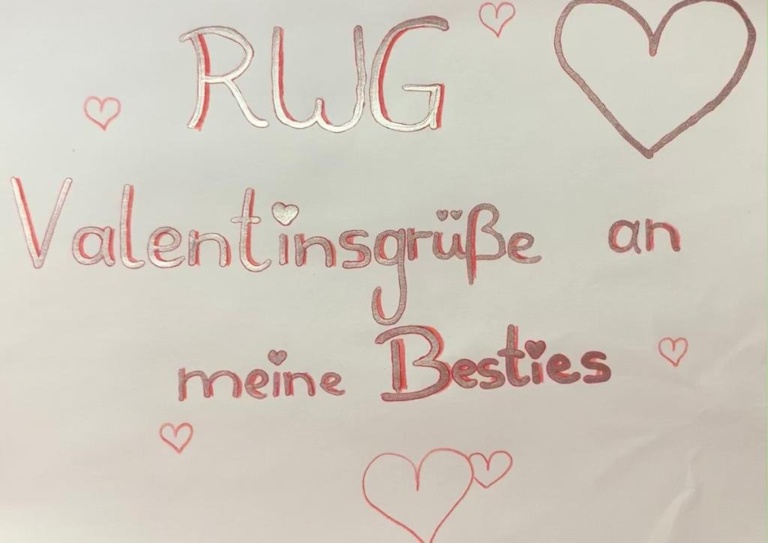 RWG
Valentinsgrüße an
meine Besties